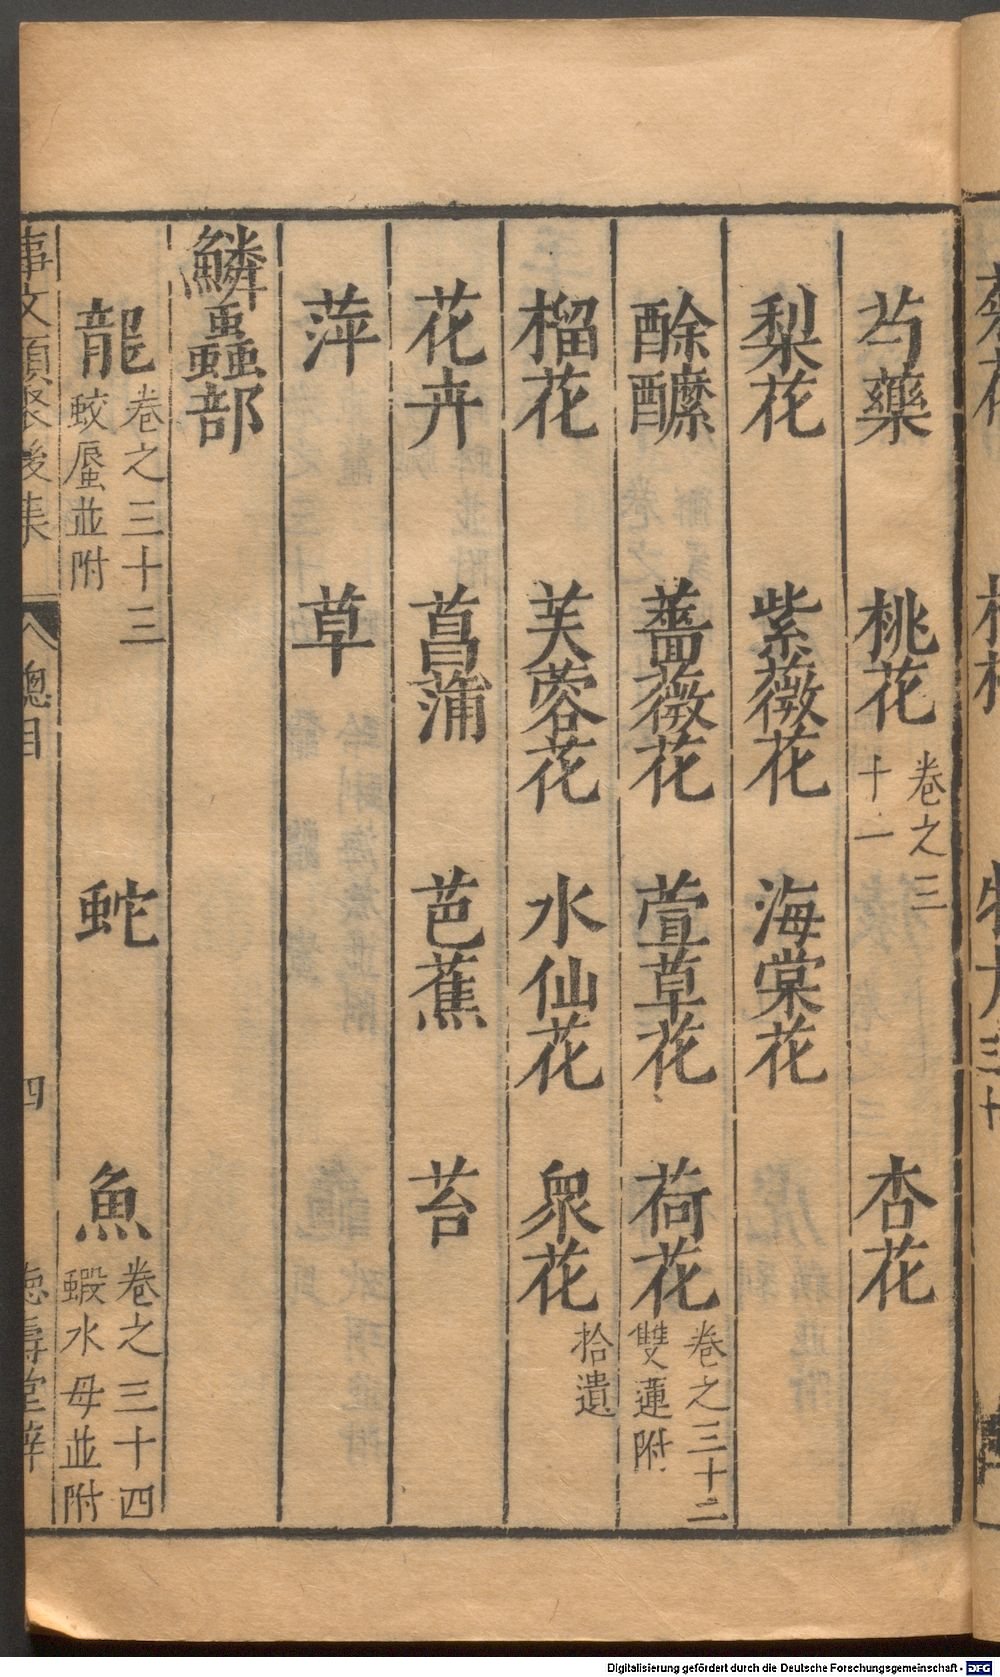 芍藥　桃花　卷之三十一　杏花
梨花　紫薇花　海棠花
酴醾　薔薇花　萱草花　荷花　卷之三十二　雙蓮附
榴花　芙蓉花　水仙花　眾花　拾遺
花卉　菖蒲　芭蕉　苔
萍　草
鱗蟲部
龍　卷之三十三　蛟蜃並附　蛇　魚　卷之三十四　蝦水母並附
事文類聚後集　總目　四　德壽堂梓
Digitalisierung gefördert durch die Deutsche Forschungsgemeinschaft - DFG